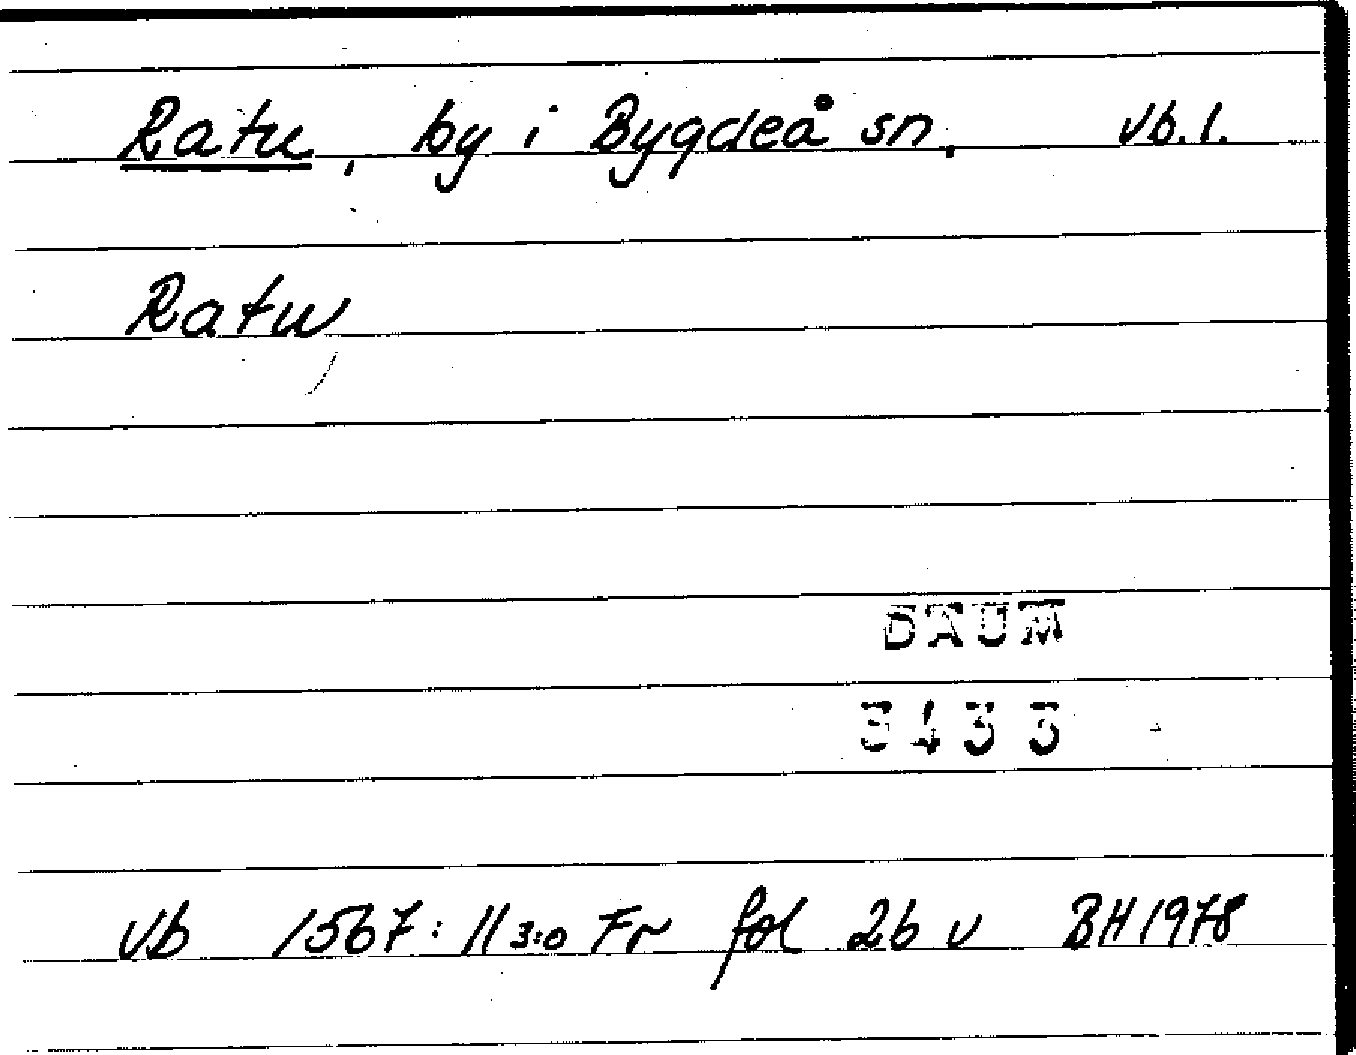 Ratu, by i Bygdeå sn, Vb. l.
Ratu
DAUM
3433
Vb 1567: 11 3:0 Fr fol 26 v BH 1978